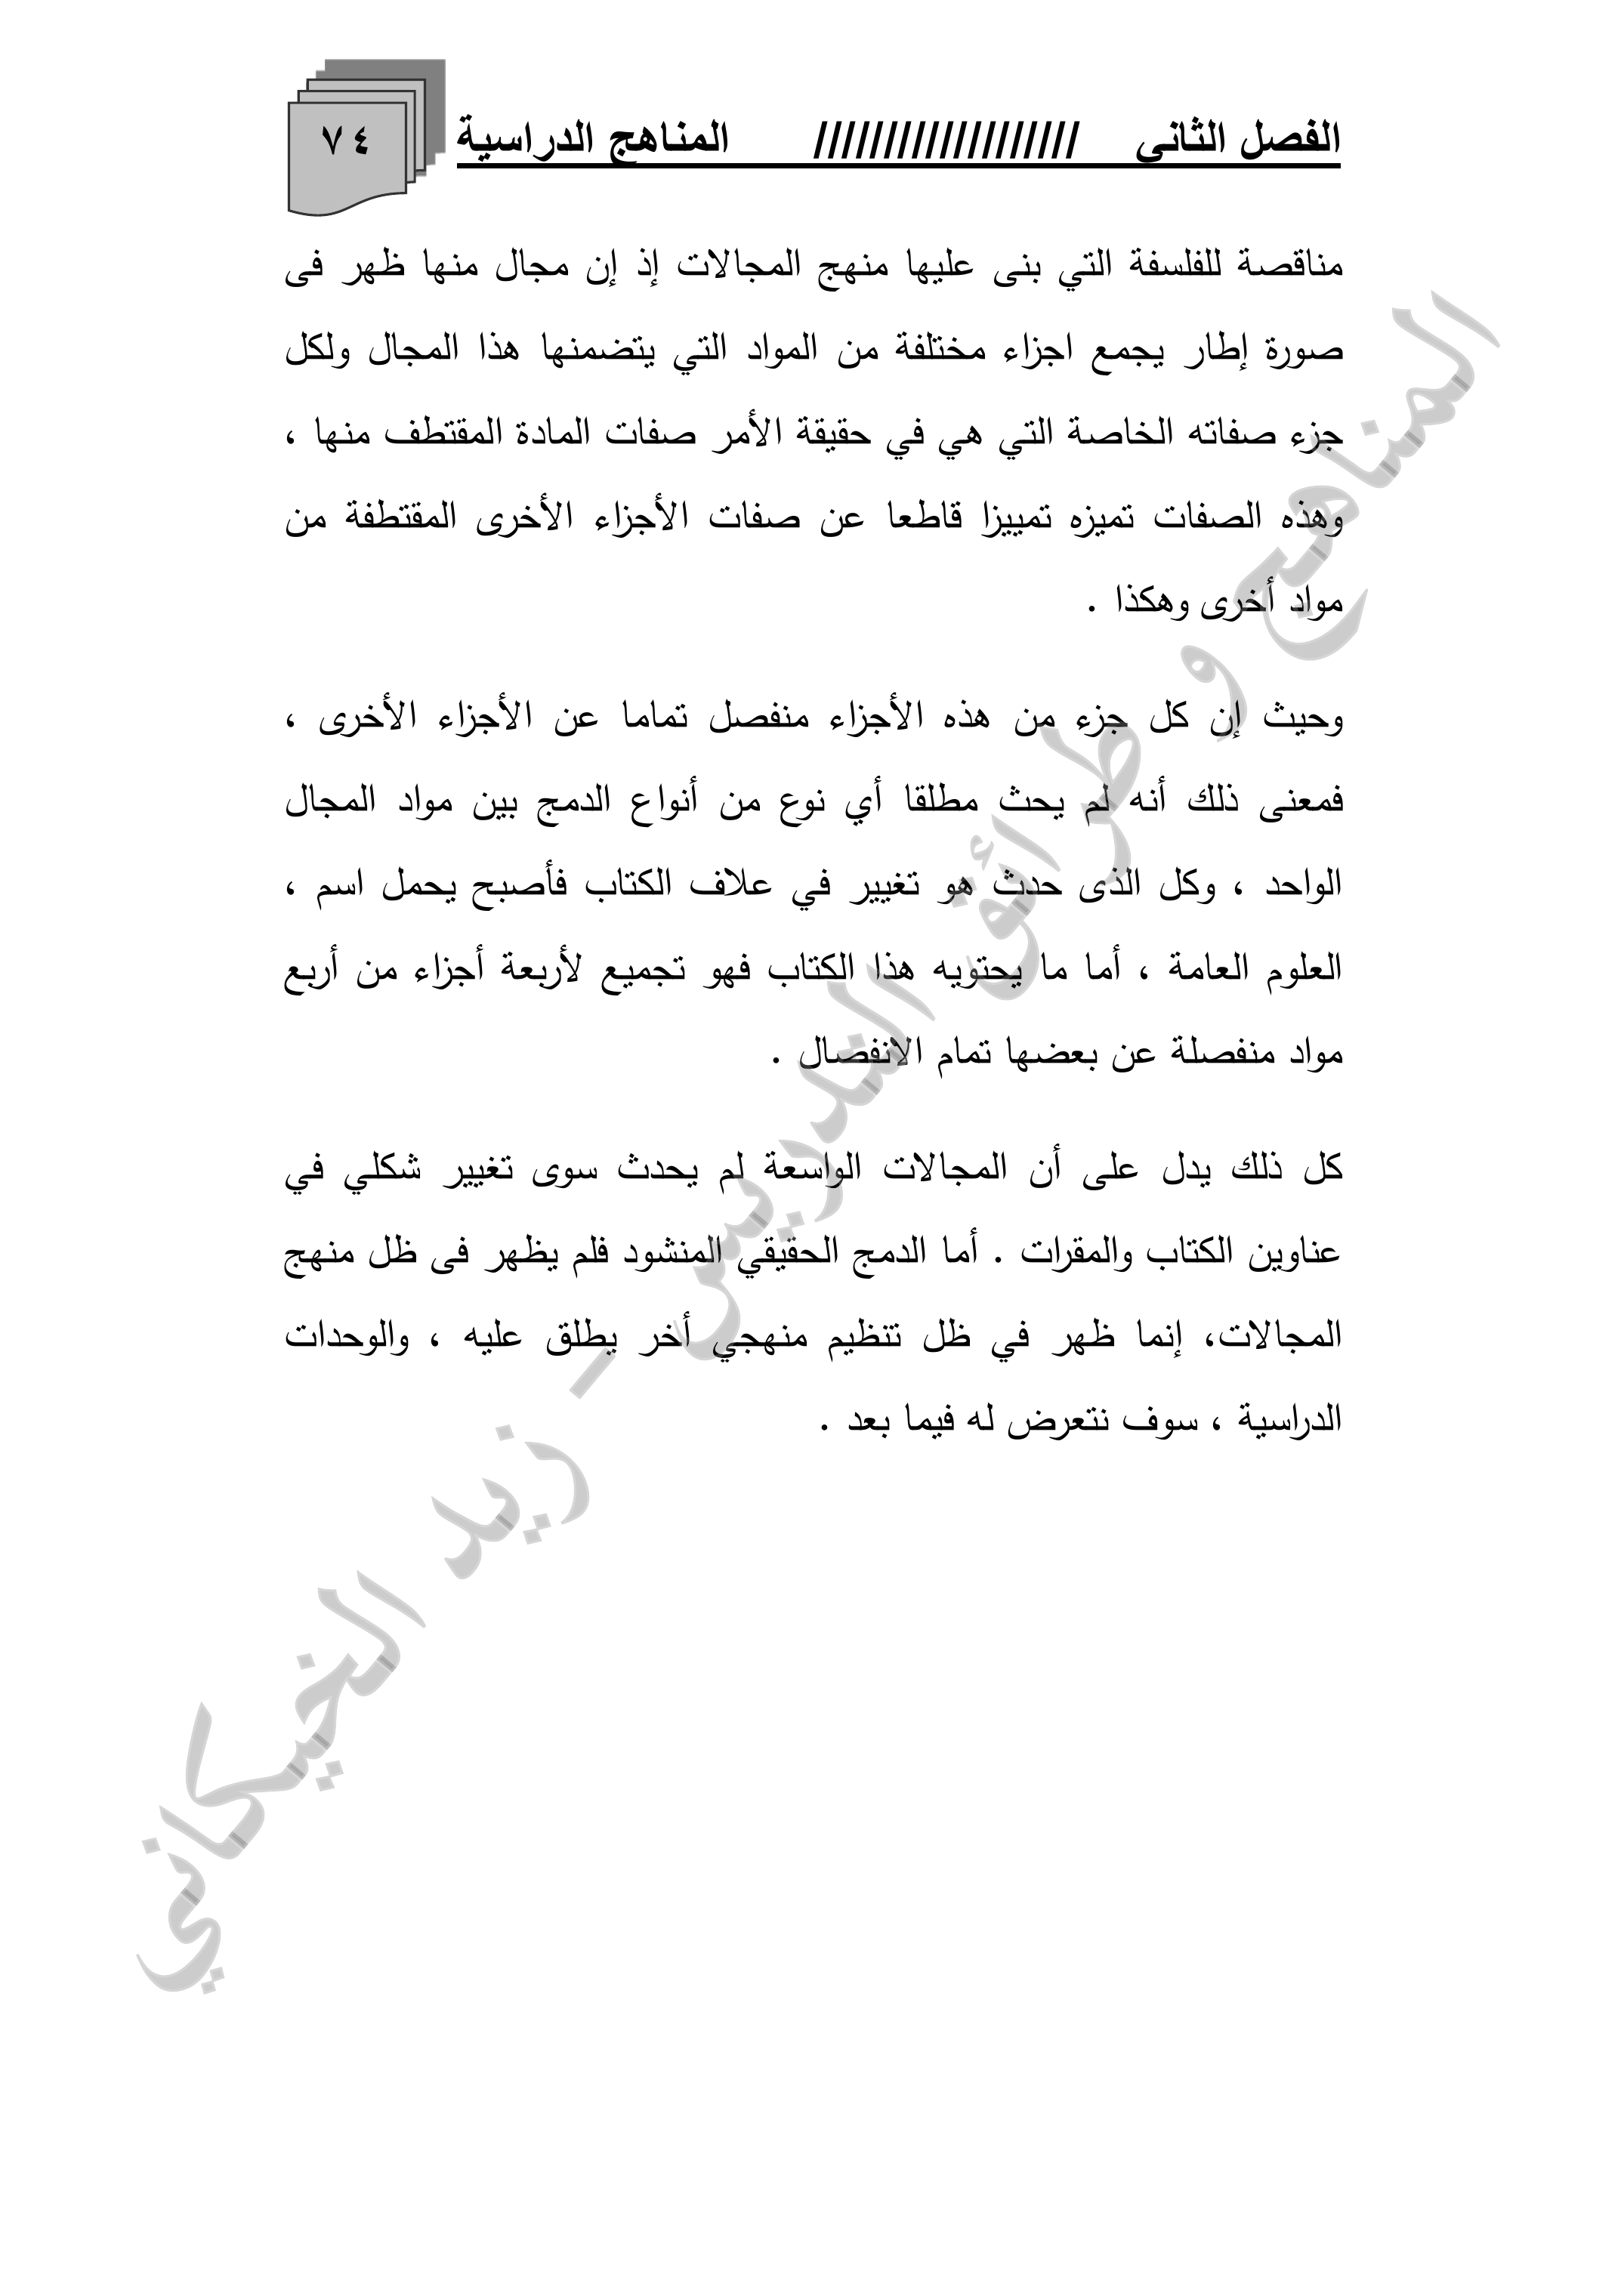 الفصل الثاني /////////////////// المناهج الدراسية ٧٤
مناقصة للفلسفة التي بنى عليها منهج المجالات إذ إن مجال منها ظهر فى
صورة إطار يجمع اجزاء مختلفة من المواد التي يتضمنها هذا المجال ولكل
جزء صفاته الخاصة التي هي في حقيقة الأمر صفات المادة المقتطف منها ،
وهذه الصفات تميزه تمييزا قاطعا عن صفات الأجزاء الأخرى المقتطفة من
مواد أخرى وهكذا .
وحيث إن كل جزء من هذه الأجزاء منفصل تماما عن الأجزاء الأخرى ،
فمعنى ذلك أنه لم يحث مطلقا أي نوع من أنواع الدمج بين مواد المجال
الواحد ، وكل الذى حدث هو تغيير في علاف الكتاب فأصبح يحمل اسم ،
العلوم العامة ، أما ما يحتويه هذا الكتاب فهو تجميع لأربعة أجزاء من أربع
مواد منفصلة عن بعضها تمام الانفصال .
كل ذلك يدل على أن المجالات الواسعة لم يحدث سوى تغيير شكلي في
عناوين الكتاب والمقرات . أما الدمج الحقيقي المنشود فلم يظهر فى ظل منهج
المجالات، إنما ظهر في ظل تنظيم منهجي أخر يطلق عليه ، والوحدات
الدراسية ، سوف نتعرض له فيما بعد .
المناهج و طرائق التدريس - زيد الخيكاني